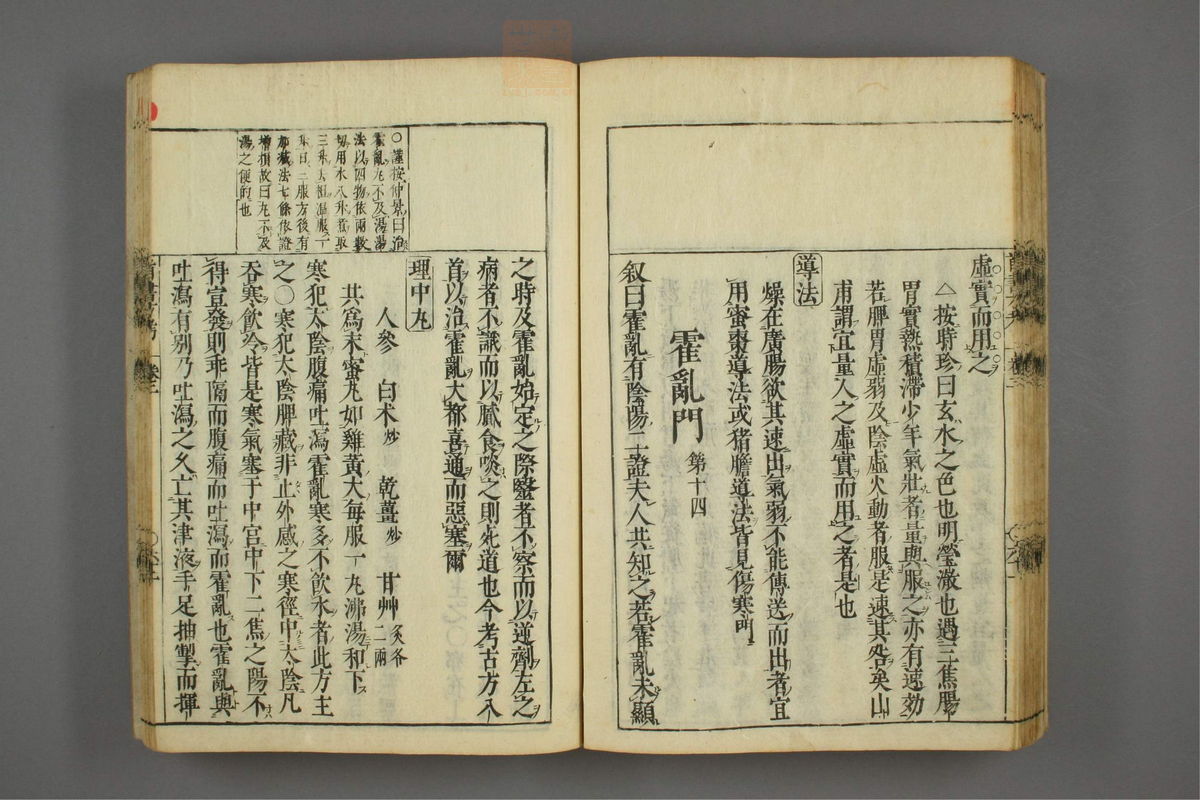 虛實而用之
△按時珍曰玄水之色也明瑩澈也過三焦腸
胃實熱積滯少年氣壯者量與服之亦有速効
若脾胃虛弱及陰虛火動者服是速其咎矣山
甫謂宜量人之虛實而用之者是也
導法
燥在廣腸欲其速出氣弱不能傳送而出者宜
用蜜棗導法或猪膽導法皆見傷寒門
霍亂門 第十四
叙曰霍亂有陰陽二證夫人共知之若霍亂未顯
之時及霍亂始定之際醫者不察而以逆劑左之
病者不識而以膩食啖之則死道也今考古方八
首以治霍亂大都喜通而惡塞爾
理中丸
人參 白术炒 乾薑炒 甘艸炙各二兩
共爲末蜜丸如雞黃大每服一丸沸湯和下
寒犯太陰腹痛吐瀉霍亂寒多不飲水者此方主
之○寒犯太陰脾藏非止外感之寒徑中太陰凡
吞寒飲冷皆是寒氣塞于中宫中下二焦之陽不
得宣發則乖隔而腹痛而吐瀉而霍亂也霍亂與
吐瀉有别乃吐瀉之久亡其津液手足抽掣而揮
○謹按仲景曰治
霍亂丸不及湯湯
法以四物依兩數
切用水八升煮取
三升去相溫服一
升日三服方後有
加減法七條依證
增損故曰丸不及
湯之便的也